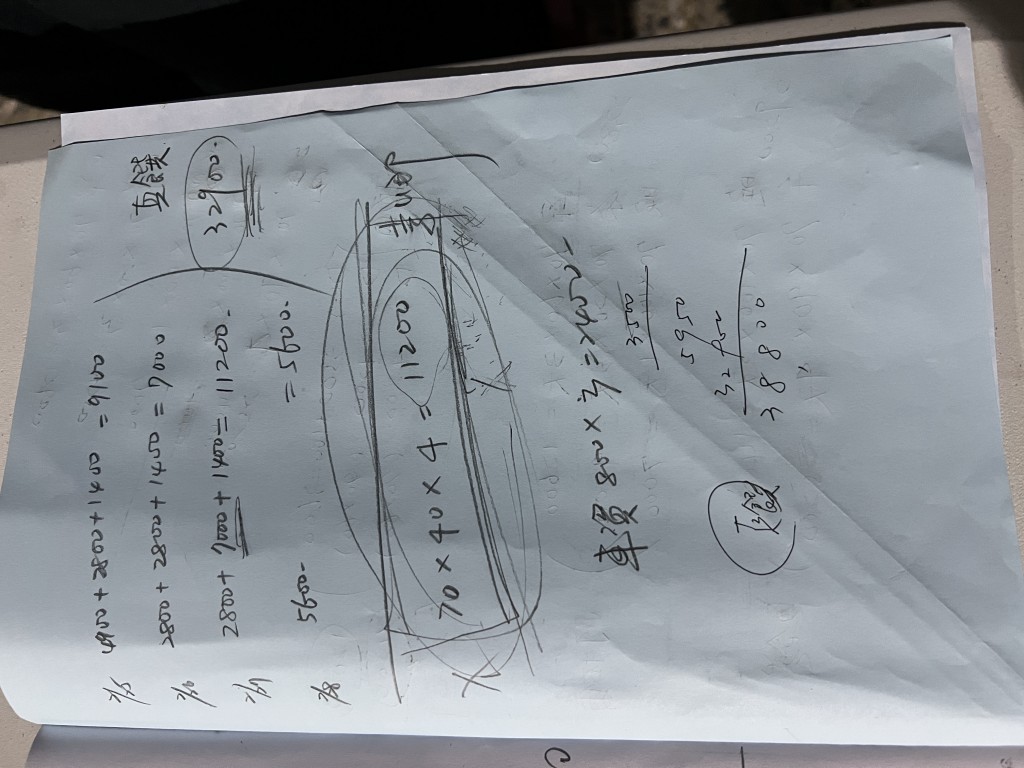 真錢
7/5 4900+2800+1400 = 9100
32900.
7/6 2800+2800+1400 = 7000
7/7 2800+7000+1400=11200-
7/8 5600- =5600-
70×40×4=11200
車資 800×3=2400-
3500
5950
32900
38800